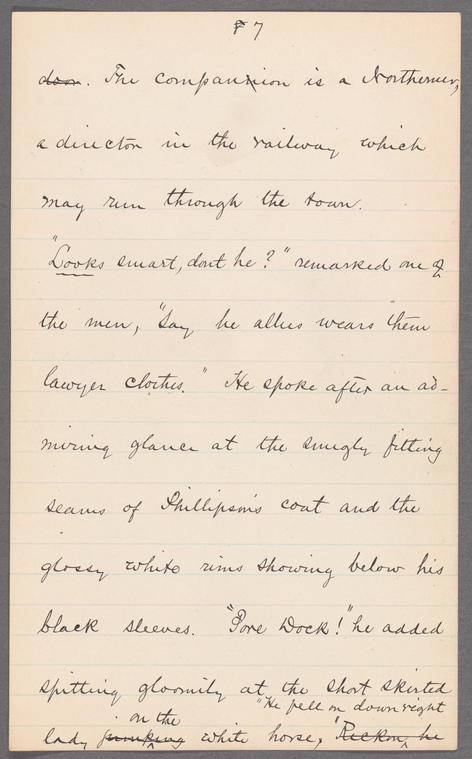 7
door. The companion is a Northerner,
a director in the railway which
may run through the town.
"Looks smart, dont he?" remarked one of
the men, "Say he allus wears them
lawyer clothes." He spoke after an ad-
miring glance at the snugly fitting
seams of Phillipson's coat and the
glossy white rims showing below his
black sleeves. "Pore Dock!" he added
spitting gloomily at the short skirted
"He fell on downright
on the
lady jumping white horse, "Reckon, he